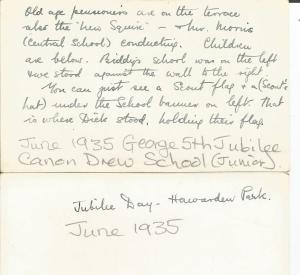 Old age pensioners are on the terrace
also the "New Squire" - & Mr. Morris
(Central School) conducting. Children
are below. Biddy's school was on the left
& we stood against the wall to the right.
You can just see a Scout flag & a (Scout's
hat) under the School banner on left. That
is where Dick stood, holding their flag.
June 1935 George 5th Jubilee
Canon Drew School (Junior).
Jubilee Day - Hawarden Park.
June 1935